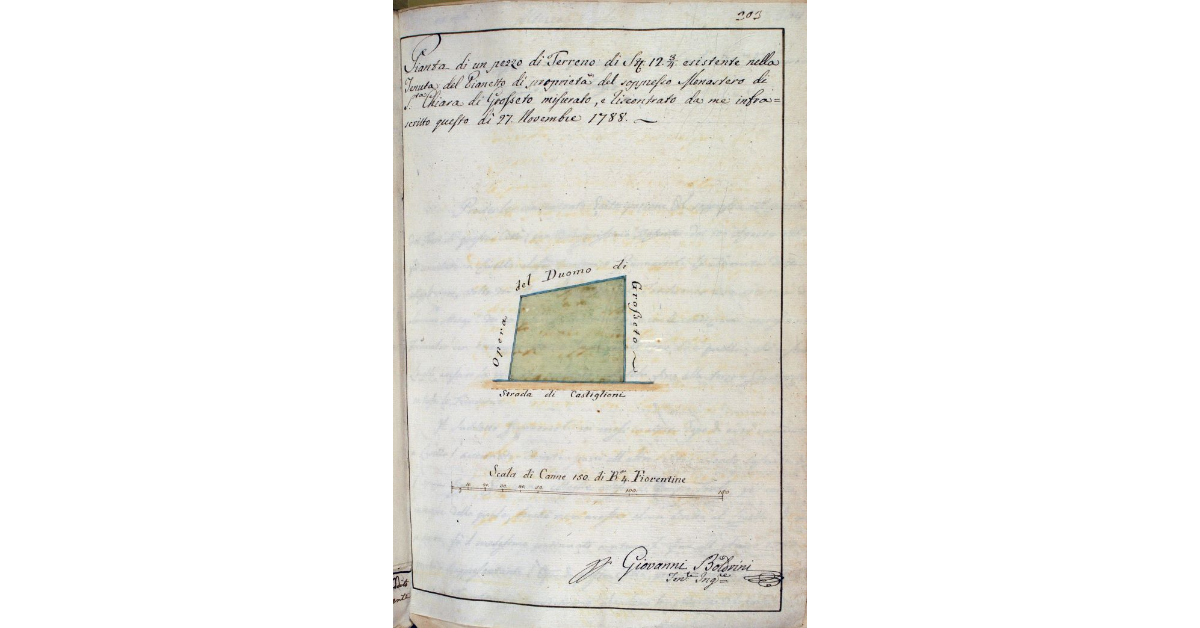 203
Pianta di un pezzo di Terreno di S 12 3/4 esistente nella
Tenuta del Pianetto di proprietà del soppresso Monastero di
S.ta Chiara di Grosseto misurato, e riscontrato da me infra=
scritto questo dì 27. Novembre 1788.
Opera del Duomo di Grosseto
Strada di Castiglioni
Scala di Canne 150. di B.a 4. Fiorentine
10 20 30 40 50 100 150
Giovanni
Ten.te Ing.re